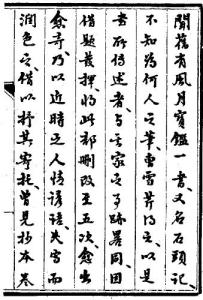 聞舊有風月寶鑑一書、又名石頭記、
不知為何人之筆、曹雪芹得之、以是
書所傳述者、與其家之事跡畧同、因
借題發揮、將此部刪改至五次、愈出
愈奇、乃以近時之人情諺語、夾寫而
潤色之、借以抒其寄託、曾見抄本卷